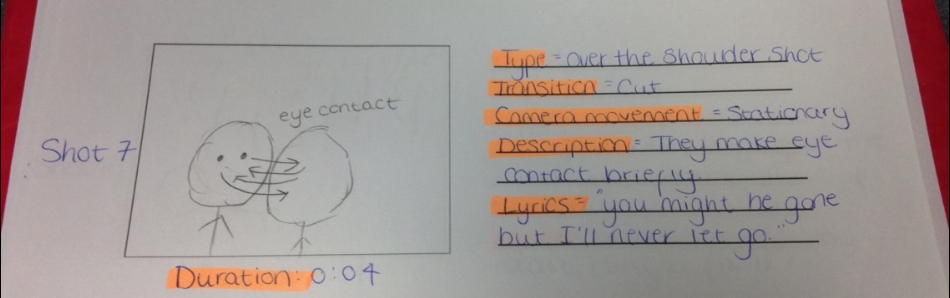 Shot 7
eye contact
Duration: 0:04
Type = Over the Shoulder Shot
Transition = Cut
Camera movement = Stationary
Description = They make eye
contact briefly.
Lyrics = "you might be gone
but I'll never let go."